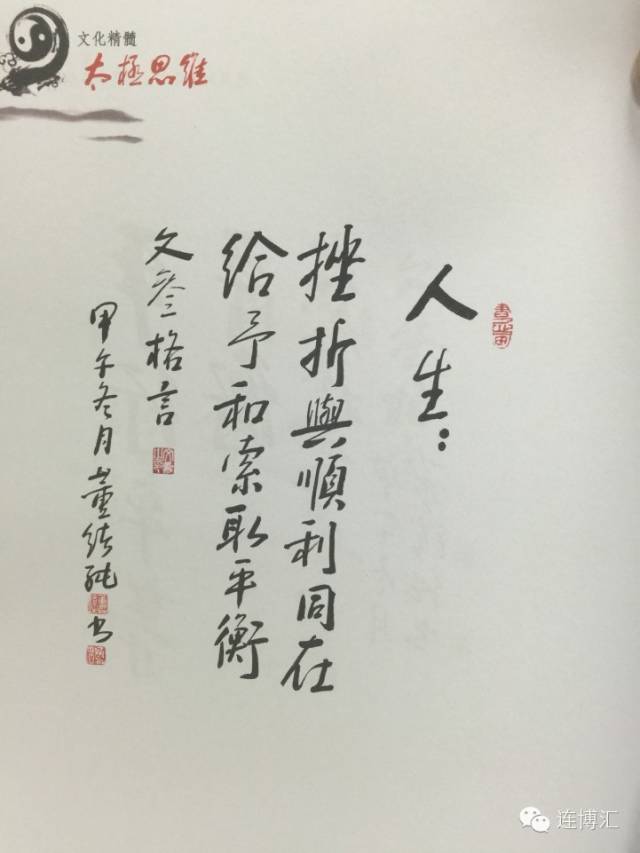 文化精髓
太極思維
人生：
挫折與順利同在
給予和索取平衡
文叁格言
甲午冬月董結純书
连博汇